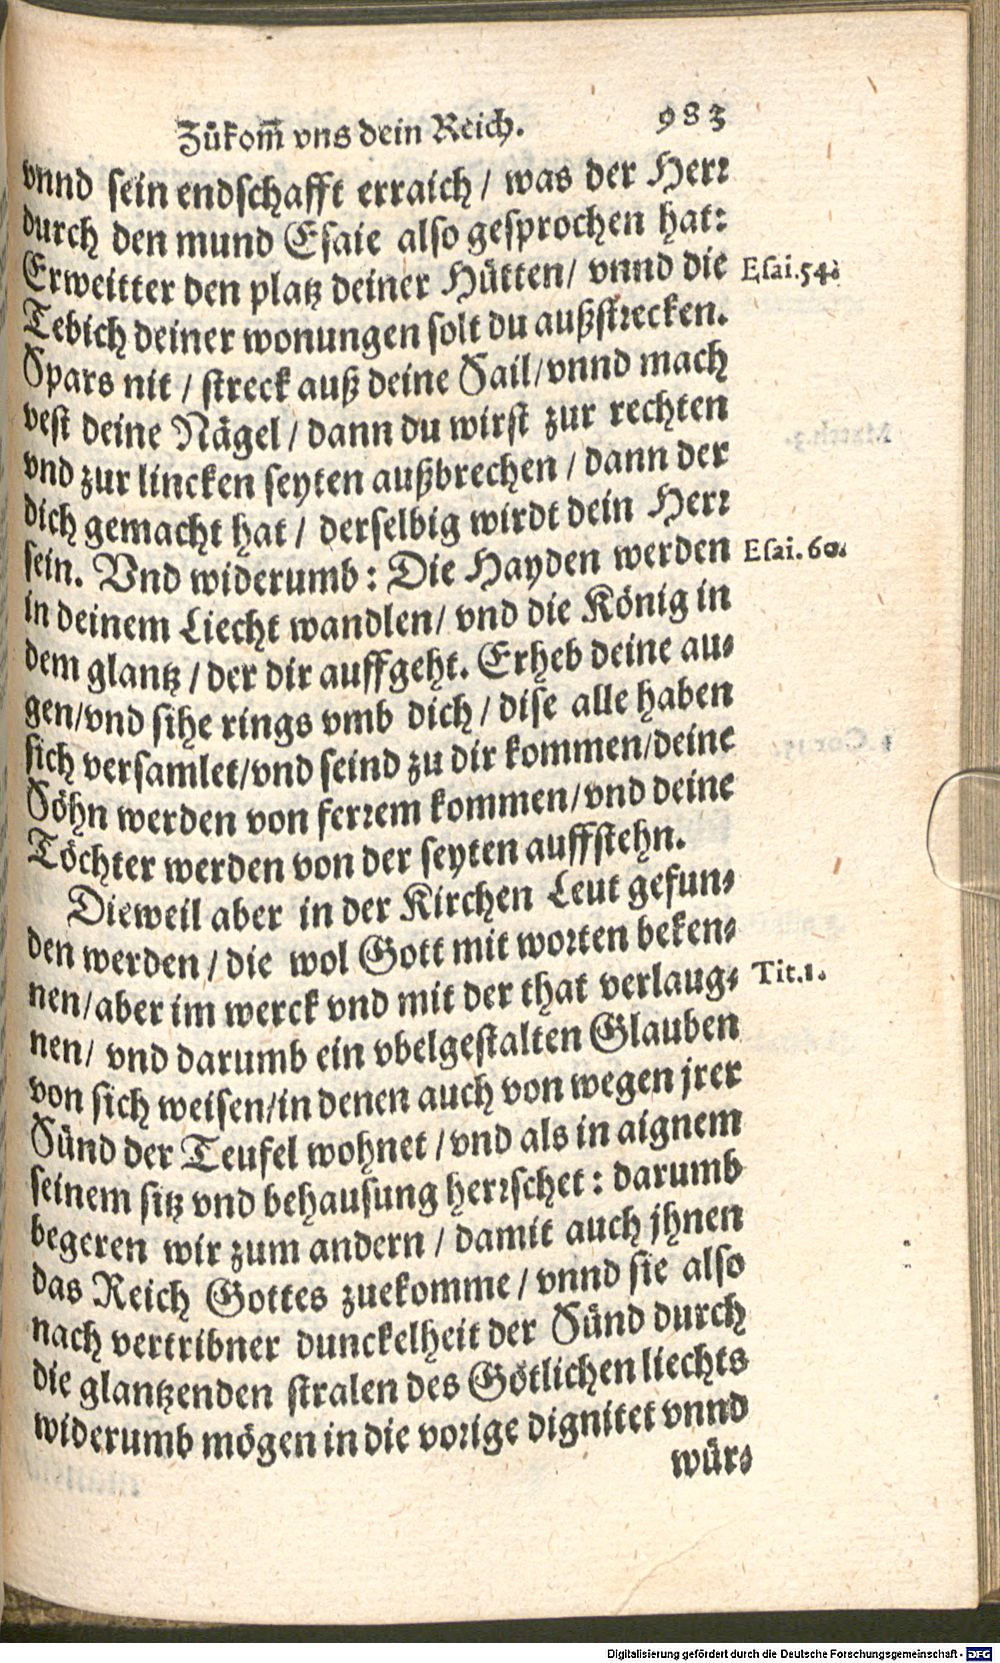 Zůkom̃ vns dein Reich. 983
vnnd sein endschafft erraich / was der Herr
durch den mund Esaie also gesprochen hat:
Erweitter den platz deiner Hütten/ vnnd die Esai.54.
Tebich deiner wonungen solt du außstrecken.
Spars nit / streck auß deine Sail/vnnd mach
vest deine Nägel / dann du wirst zur rechten
vnd zur lincken seyten außbrechen / dann der
dich gemacht hat / derselbig wirdt dein Herr
sein. Vnd widerumb: Die Hayden werden Esai. 60.
in deinem Liecht wandlen/ vnd die König in
dem glantz / der dir auffgeht. Erheb deine au⸗
gen/vnd sihe rings vmb dich / dise alle haben
sich versamlet/vnd seind zu dir kommen/deine
Söhn werden von ferrem kommen/vnd deine
Töchter werden von der seyten auffstehn.
Dieweil aber in der Kirchen Leut gefun⸗
den werden / die wol Gott mit worten beken⸗
nen/aber im werck vnd mit der that verlaug⸗ Tit.1.
nen/ vnd darumb ein vbelgestalten Glauben
von sich weisen/in denen auch von wegen jrer
Sünd der Teufel wohnet / vnd als in aignem
seinem sitz vnd behausung herrschet: darumb
begeren wir zum andern / damit auch jhnen
das Reich Gottes zuekomme / vnnd sie also
nach vertribner dunckelheit der Sünd durch
die glantzenden stralen des Götlichen liechts
widerumb mögen in die vorige dignitet vnnd
wür⸗
Digitalisierung gefördert durch die Deutsche Forschungsgemeinschaft - DFG